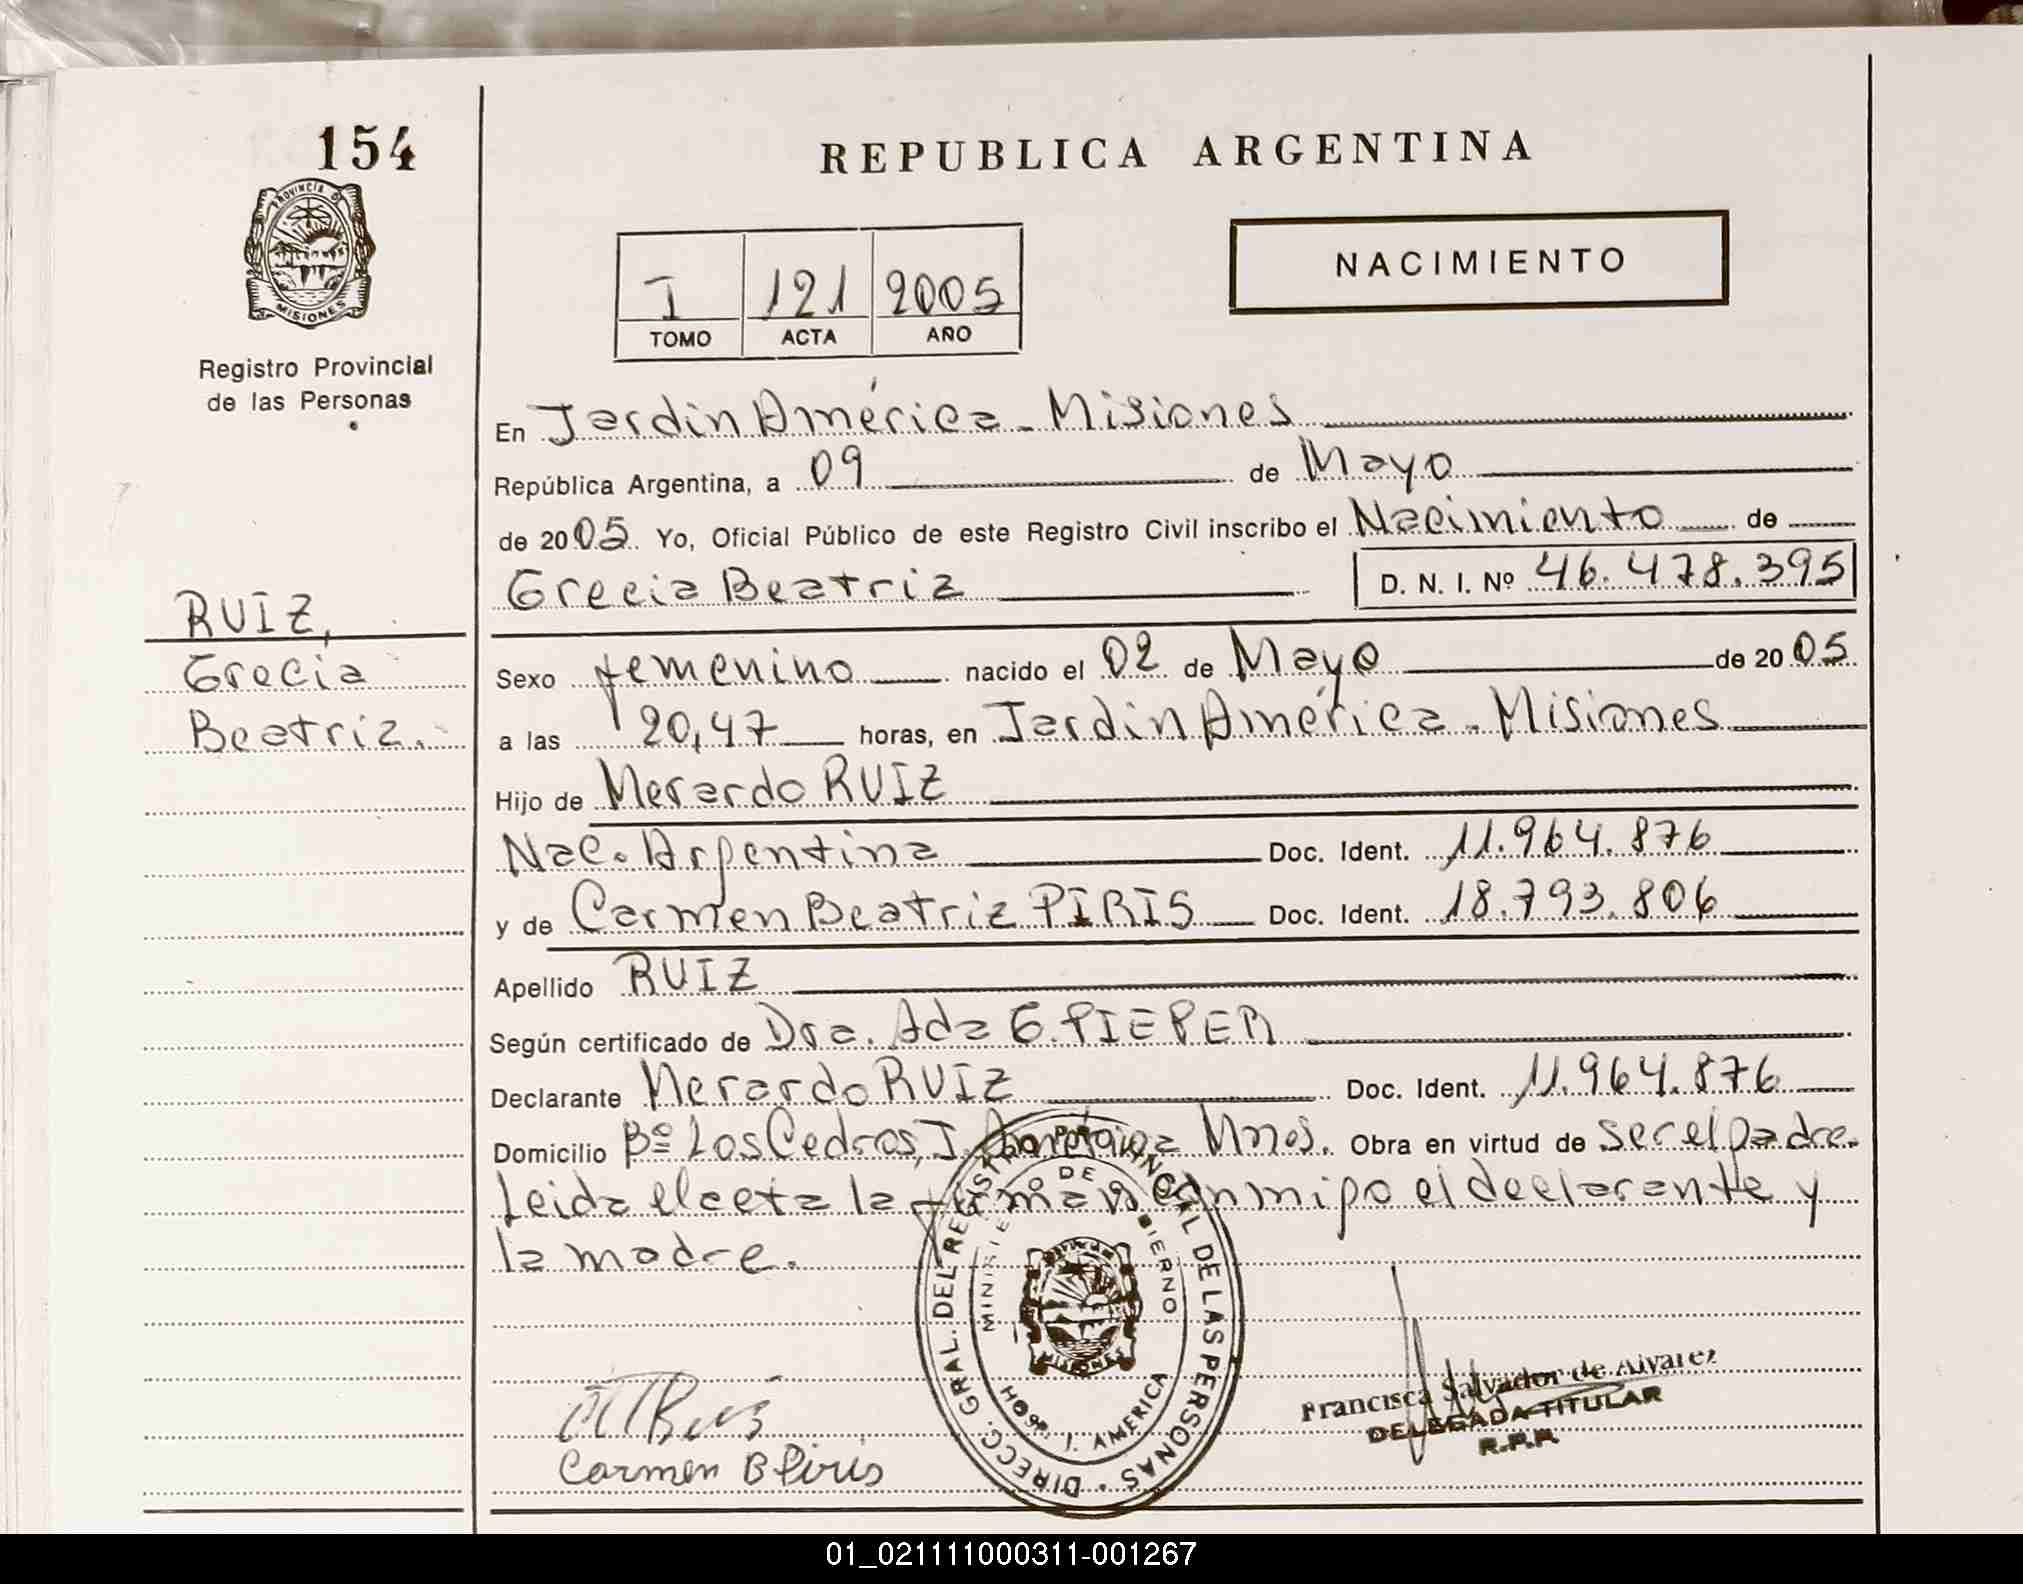 154
REPUBLICA ARGENTINA
PROVINCIA D
MISIONES
Registro Provincial
de las Personas
I 121 2005
TOMO ACTA AÑO
NACIMIENTO
En Jardin América - Misiones
República Argentina, a 09 de Mayo
de 2005 Yo, Oficial Público de este Registro Civil inscribo el Nacimiento de
Grecia Beatriz D. N. I. Nº 46.478.395
RUIZ,
Grecia
Beatriz.
Sexo femenino nacido el 02 de Mayo de 2005
a las 20,47 horas, en Jardin América - Misiones
Hijo de Merardo RUIZ
Nac. Argentina Doc. Ident. 11.964.876
y de Carmen Beatriz PIRIS Doc. Ident. 18.793.806
Apellido RUIZ
Según certificado de Dra. Ada G. PIEPER
Declarante Merardo RUIZ Doc. Ident. 11.964.876
Domicilio Bº Los Cedros, J. América Mnes. Obra en virtud de ser el padre.
Leida el acta la firman conmigo el declarante y
la madre.
DIRECC. GRAL. DEL REGISTRO PROVINCIAL DE LAS PERSONAS
MINISTERIO DE GOBIERNO
MISIONES
HOSP. J. AMERICA
Carmen B Piris
Francisca Salvador de Alvarez
DELEGADA TITULAR
R.P.P.
01_021111000311-001267